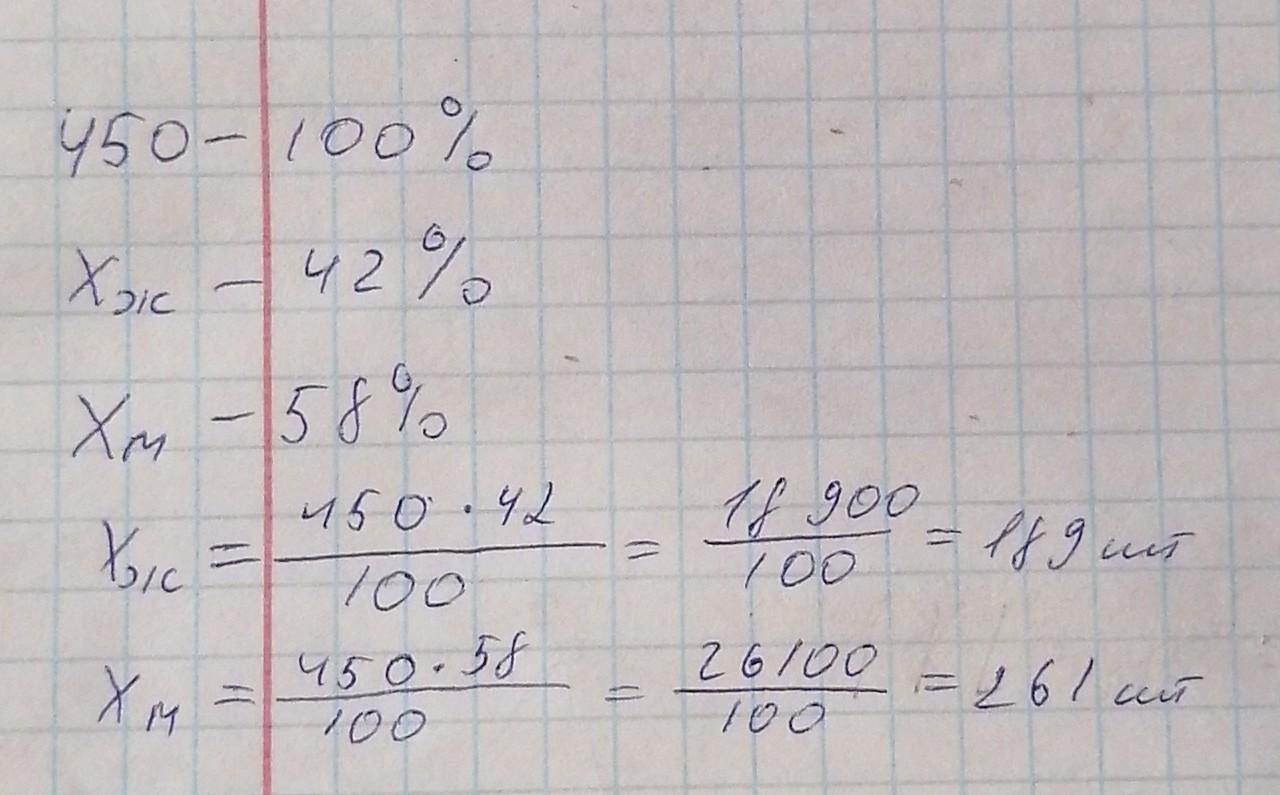 450 - 100%
Xж - 42%
Xм - 58%
Xж = 450 · 42 / 100 = 18 900 / 100 = 189 шт
Xм = 450 · 58 / 100 = 26100 / 100 = 261 шт